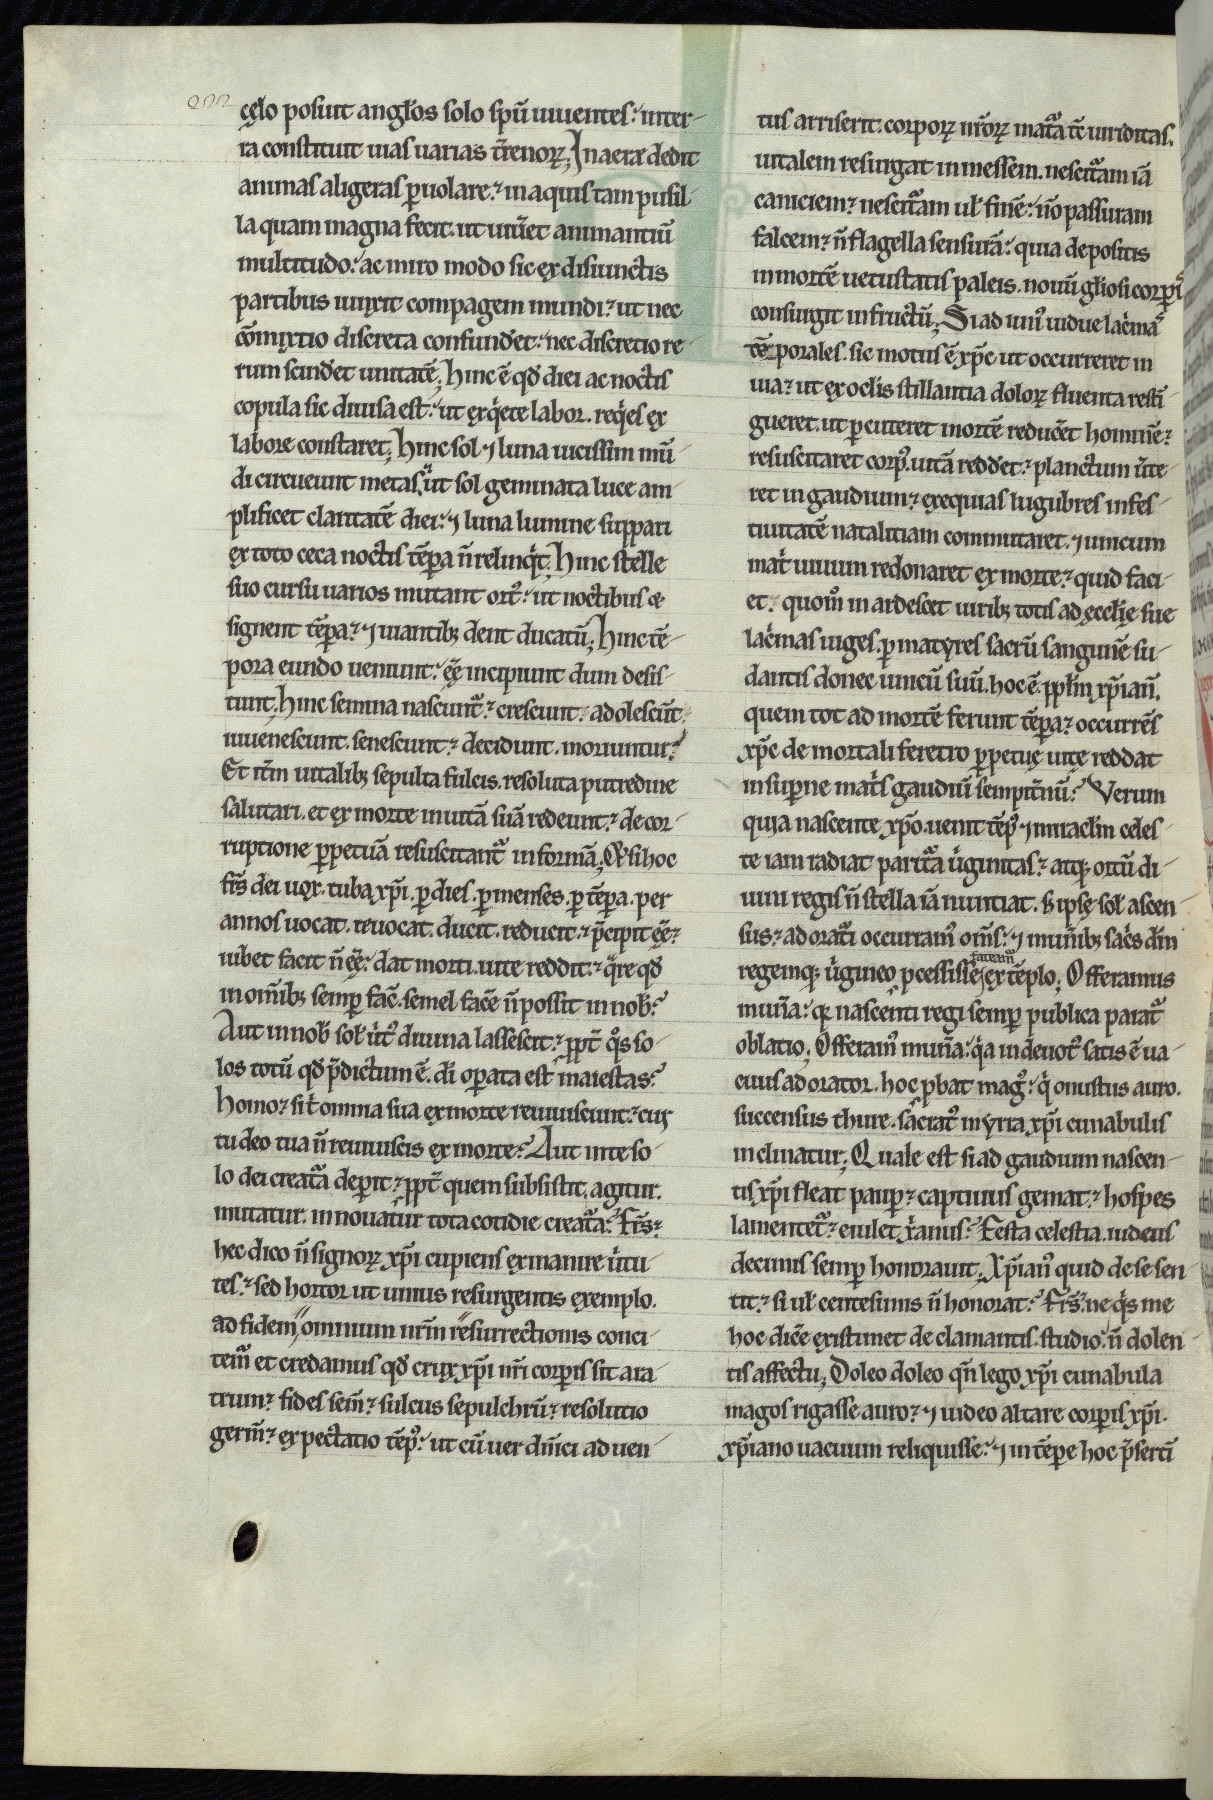 cęlo posuit angłos solo spũ uiuentes. inter-
ra constituit uias uarias t̃renoꝝ; In aera dedit
animas aligeras ꝑuolare. in aquis tam pusil-
la quam magna fecit. ut uiũet animantiũ
multitudo. ac miro modo sic ex disiunctis
partibus iunxit compagem mundi. ut nec
cõmixtio discreta confundet. nec discretio re-
rum scindet unitatẽ; Hinc ẽ qđ diei ac noctis
copula sic diuisa est. ut ex q̇ete labor. req̇es ex
labore constaret; Hinc sol ⁊ luna uicissim mũ-
di circueunt metas. ut sol geminata luce am-
plificet claritatẽ diei. ⁊ luna lumine suppari
ex toto ceca noctis tẽpa ñ relinq̇t; Hinc stelle
suo cursu uarios mutant ort᷒. ut noctibus de-
signent tẽpa. ⁊ uiantibꝫ dent ducatũ; Hinc tẽ-
pora eundo ueniunt. ꝫ incipiunt dum desis-
tunt. Hinc semina nascunt᷑. crescunt. adolescũt.
iuuenescunt. senescunt. decidunt. moriuntur.
Et itm̃ uitalibꝫ sepulta sulcis. resoluta putredine
salutari. et ex morte in uitã suã redeunt. de cor-
ruptione ꝑpetuã resuscitant᷑ in formã; Q̃ si hoc
fr̃s dei uox. tuba xp̃i. ꝑ dies. ꝑ menses. ꝑ tẽpa. per
annos uocat. reuocat. ducit. reducit. p̃cipit eẽ.
iubet facit ñ eẽ. dat morti. uite reddit. q̃re qđ
in om̃ibꝫ semꝑ facẽ. semel facẽ ñ possit in nob̃.
Aut in nob̃ sol̃ ũt᷒ diuina lassescit. ppt̃ q̊s so-
los totũ qđ p̃dictum ẽ. di oꝑata est maiestas.
Homo. si t̃ omnia sua ex morte reuiuiscunt. cur
tu deo tua ñ reuiuiscis ex morte. Aut in te so-
lo dei creat᷑a deꝑit. ppt̃ quem subsistit. agitur.
mutatur. innouatur tota cotidie creat᷑a. Fr̃s.
hec dico ñ signoꝝ xp̃i cupiens exinanire ũtu-
tes. sed hortor ut unius resurgentis exemplo.
ad fidem omnium nr̃m resurrectionis conci-
tem᷒ et credamus qđ crux xp̃i nr̃i corꝑis sit ara-
trum. fides sem̃. sulcus sepulchrũ. resolutio
germ̃. expectatio tẽp᷒. ut cũ uer dn̄ici aduen-
tus arriserit. corpoꝝ nr̃oꝝ mat᷑a tc̃ uiriditas.
uitalem resurgat in messem. nescit᷑am iã
caniciem. nescit᷑am ul̃ finẽ. ñ passuram
falcem. ñ flagella sensurã. quia depositis
in mortẽ uetustatis paleis. nouũ gl̃iosi corꝑis
consurgit in fructũ; Si ad uni᷒ uidue lac̃mas
tẽporales. sic motus ẽ xp̃c ut occurreret in
uia. ut ex oclis stillantia doloꝝ fluenta resti-
gueret. ut ꝑcuteret mortẽ reducẽt hominẽ.
resuscitaret corp᷒. uitã reddet. planctum ũte-
ret in gaudium. exequias lugubres in fes-
tiuitatẽ natalitiam commutaret. ⁊ unicum
mat̃ uiuum redonaret ex morte. quid faci-
et. quom̃ inardescet uiribꝫ totis ad ęccl̃ię sue
lac̃mas iuges. ꝑ matyres sacrũ sanguinẽ su-
dantis donec unicũ suũ. hoc ẽ. ppl̃m xp̃ianũ.
quem tot ad mortẽ ferunt tẽpa. occurrẽs
xp̃c de mortali feretro ꝑpetuę uitę reddat
in suꝑne mat̃s gaudiũ sempit̃nũ. Verum
quia nascente xp̃o. uenit tẽp᷒ ⁊ miraclm̃ celes-
te iam radiat parit᷑a ũginitas. atqꝫ ortũ di-
uini regis ñ stella iã nuntiat. s̃ ipsę sol̃ ascen-
sus. adorat᷑i occurram᷒ om̃s. ⁊ muñibꝫ sac̃s dñm
regemqꝫ ũgineo pcessisse fateam᷒ ex tẽplo; Offeramus
muña. qr nascenti regi semꝑ publica parat᷑
oblatio; Offeram᷒ muña. q̃a indeuot᷒ satis ẽ ua-
cuus adorator. hoc pbat mag᷒. q̇ onustus auro.
succensus thure. sac̃iat᷒ myrra xp̃i cunabulis
inclinatur; Quale est si ad gaudium nascen-
tis xp̃i fleat pauꝑ. captiuus gemat. hospes
lamentet᷑. eiulet x̃anus. Festa celestia. iudeus
decimis semꝑ honorauit; Xp̃ian᷒ quid de se sen-
tit. si ul̃ centesimis ñ honorat. Fr̃s ne q̇s me
hoc dicẽ existimet declamantis studio. ñ dolen-
tis affectu; Doleo doleo qñ lego xp̃i cunabula
magos rigasse auro. ⁊ uideo altare corꝑis xp̃i.
xp̃iano uacuum reliquisse. ⁊ in tẽpe hoc p̃sertĩ